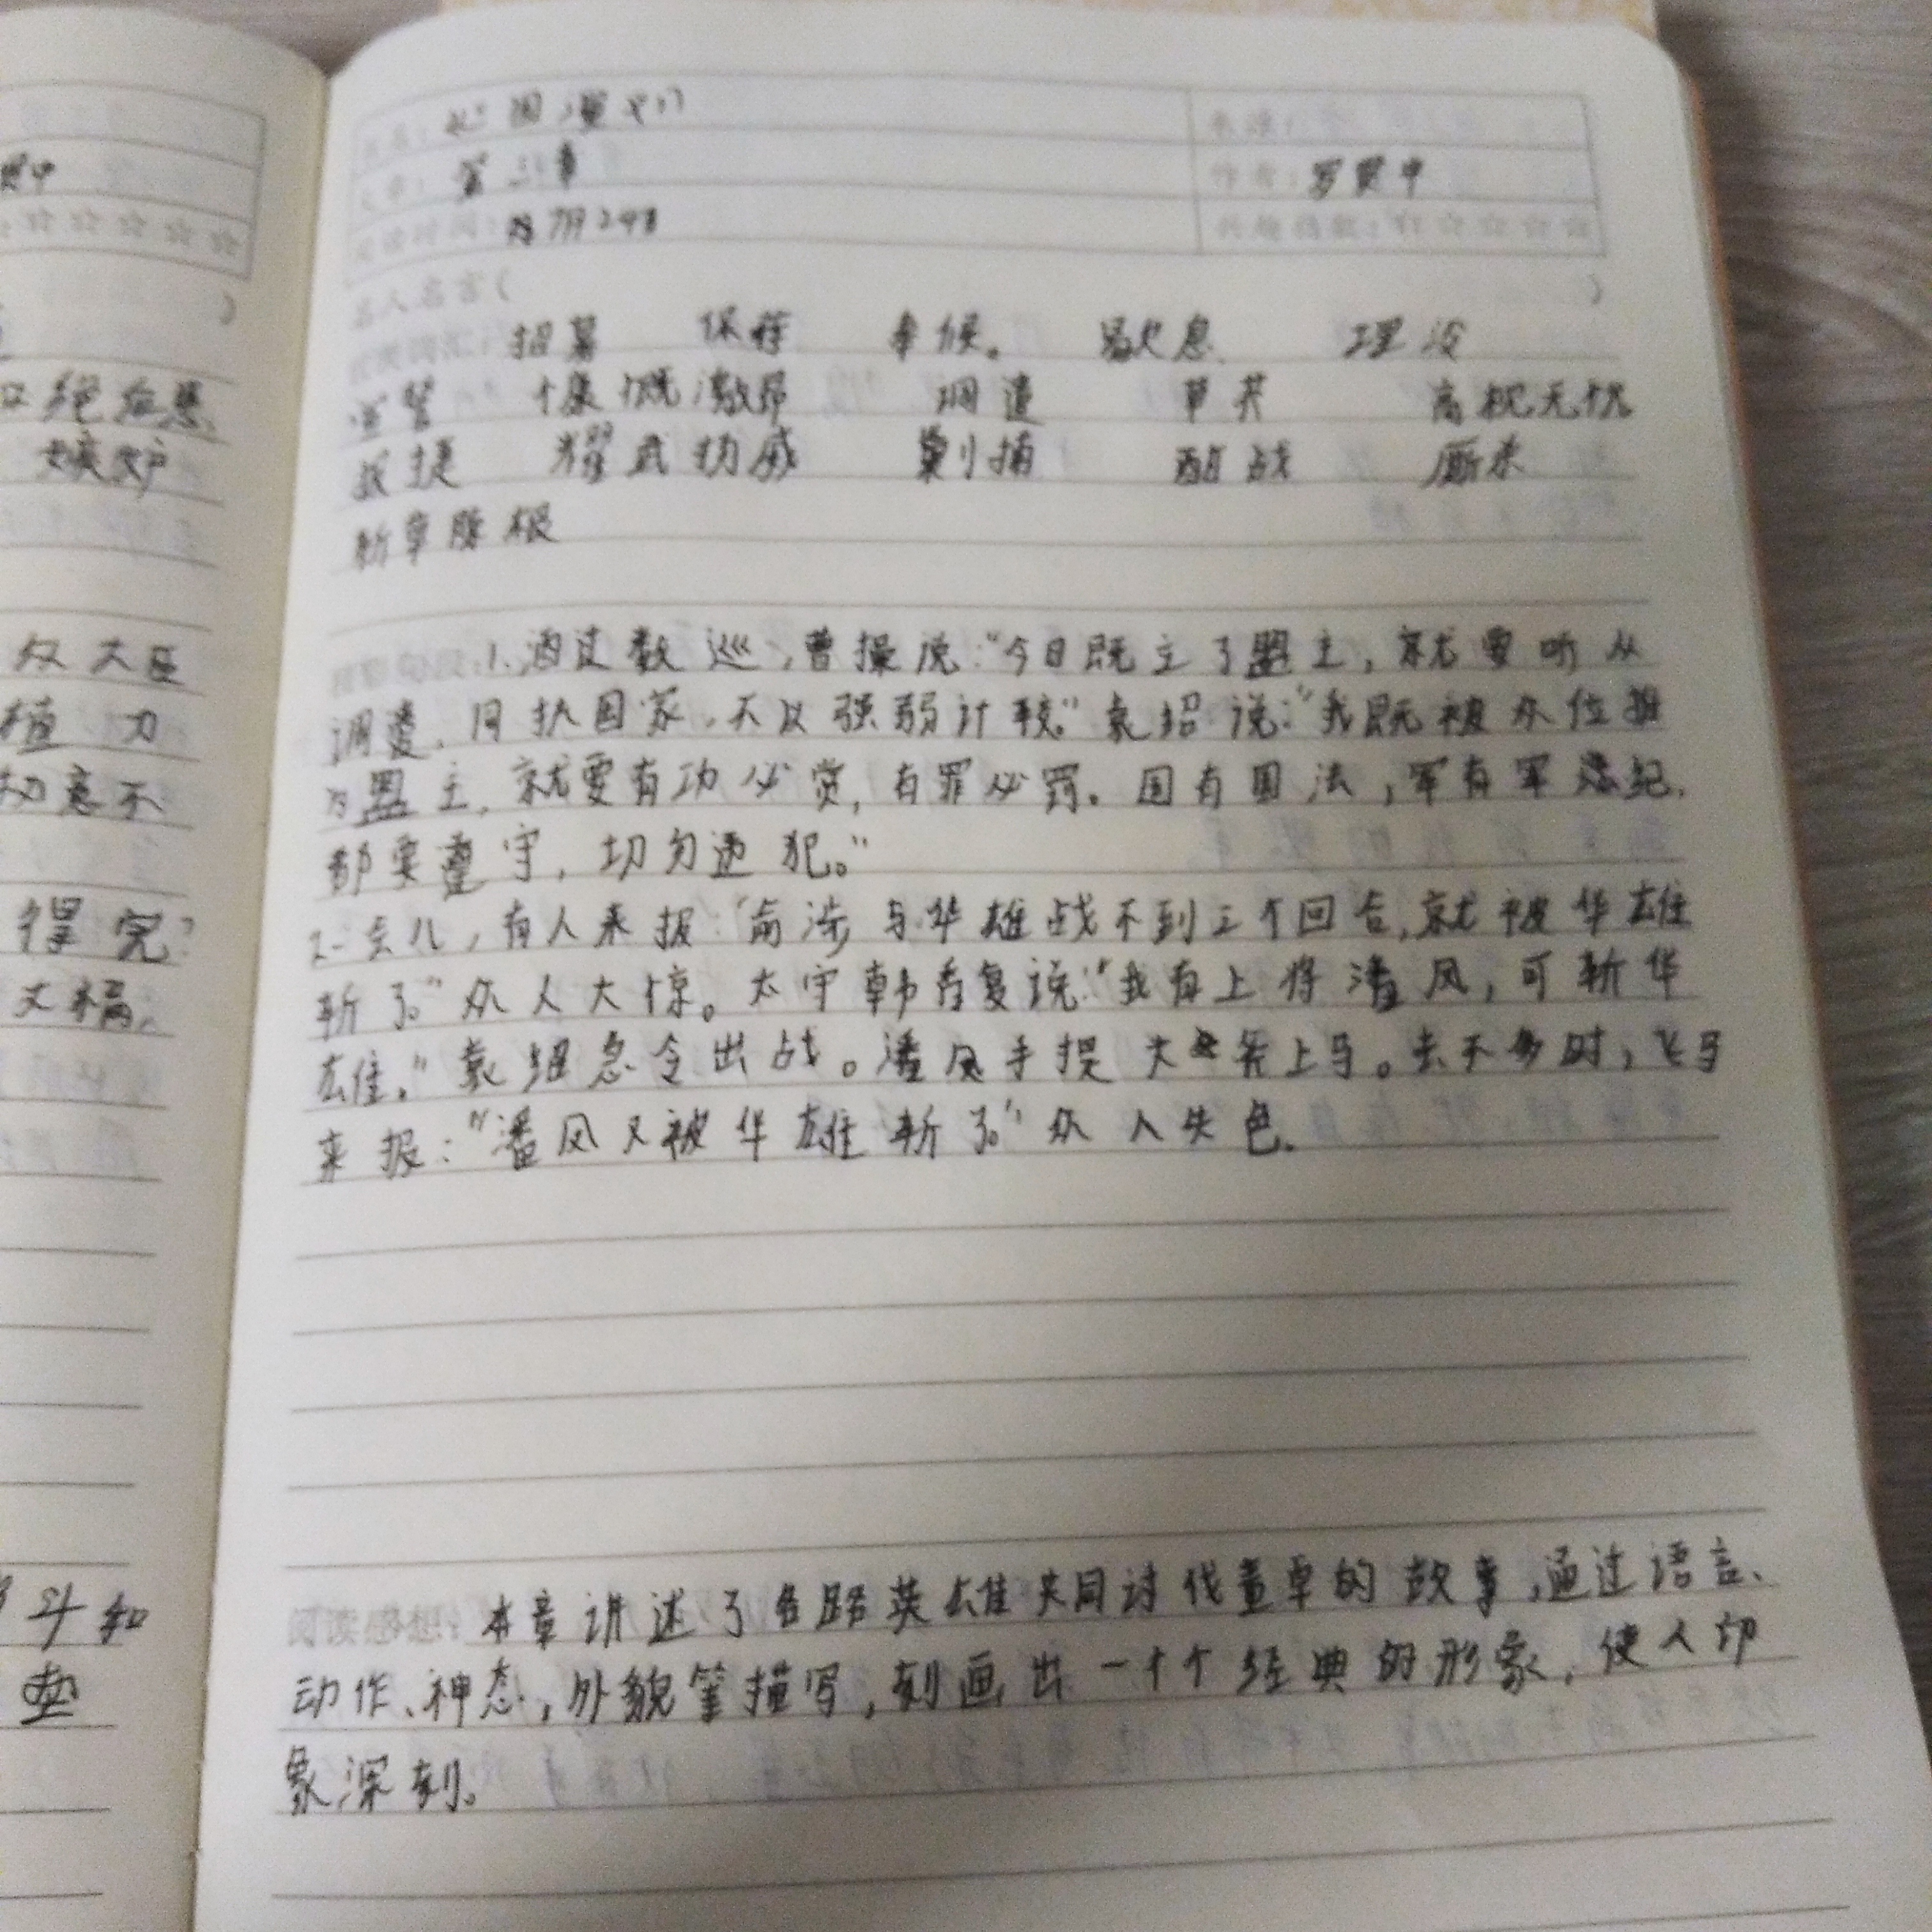 贯中
☆☆☆☆☆
)
口绝后患
嫉妒
众大臣
植 力
切意不
得完?
丈祸,
斗和
垫
三国演义
第三章
作者: 罗贯中
7月24日
☆☆☆☆☆
名人名言( )
招募 保荐 奉候。 歇息 埋没
宣誓 慷慨激昂 调遣 草芥 高枕无忧
报捷 耀武扬威 剿捕 酣战 厮杀
斩草除根
1.酒过数巡,曹操说:“今日既立了盟主,就要听从
调遣,同扶国家,不以强弱计较。”袁绍说:“我既被众位推
为盟主,就要有功必赏,有罪必罚。国有国法,军有军纪,
都要遵守,切勿违犯。”
2.一会儿,有人来报:“俞涉与华雄战不到三个回合,就被华雄
斩了。”众人大惊。太守韩馥说:“我有上将潘凤,可斩华
雄。”袁绍急令出战。潘凤手提大斧上马。去不多时,飞马
来报:“潘凤又被华雄斩了。”众人失色.
阅读感想:本章讲述了各路英雄共同讨伐董卓的故事,通过语言、
动作、神态,外貌等描写,刻画出一个个经典的形象,使人印
象深刻。